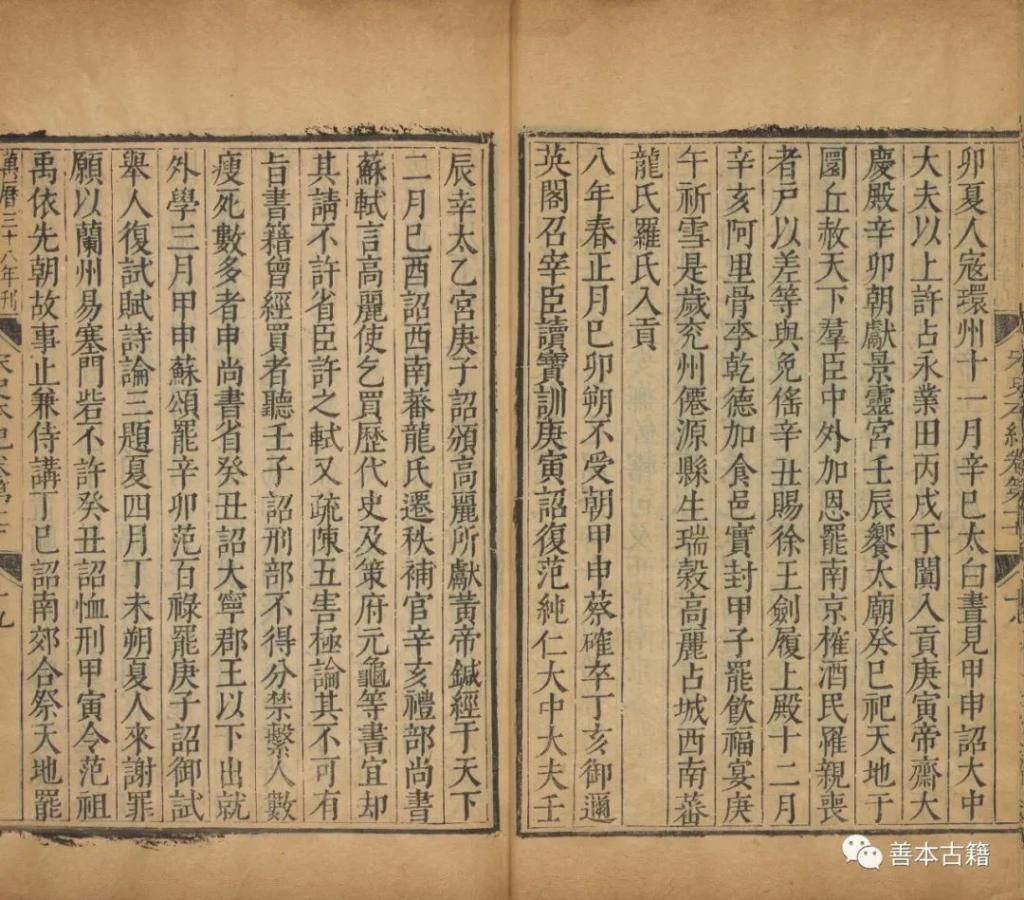 卯夏人寇環州十一月辛巳太白晝見甲申詔大中
大夫以上許占永業田丙戌于闐入貢庚寅帝齋大
慶殿辛卯朝獻景靈宮壬辰饗太廟癸巳祀天地于
圜丘赦天下羣臣中外加恩罷南京榷酒民罹親喪
者戶以差等與免徭辛丑賜徐王劍履上殿十二月
辛亥阿里骨李乾德加食邑實封甲子罷飲福宴庚
午祈雪是歲兖州僊源縣生瑞穀高麗占城西南蕃
龍氏羅氏入貢
八年春正月己卯朔不受朝甲申蔡確卒丁亥御邇
英閣召宰臣讀寶訓庚寅詔復范純仁大中大夫壬
辰幸太乙宮庚子詔頒高麗所獻黃帝鍼經于天下
二月己酉詔西南蕃龍氏遷秩補官辛亥禮部尚書
蘇軾言高麗使乞買歷代史及策府元龜等書宜却
其請不許省臣許之軾又疏陳五害極論其不可有
旨書籍曾經買者聽壬子詔刑部不得分禁繫人數
瘦死數多者申尚書省癸丑詔大寧郡王以下出就
外學三月甲申蘇頌罷辛卯范百祿罷庚子詔御試
舉人復試賦詩論三題夏四月丁未朔夏人來謝罪
願以蘭州易塞門砦不許癸丑詔恤刑甲寅令范祖
禹依先朝故事止兼侍講丁巳詔南郊合祭天地罷
萬曆三十八年刊
善本古籍